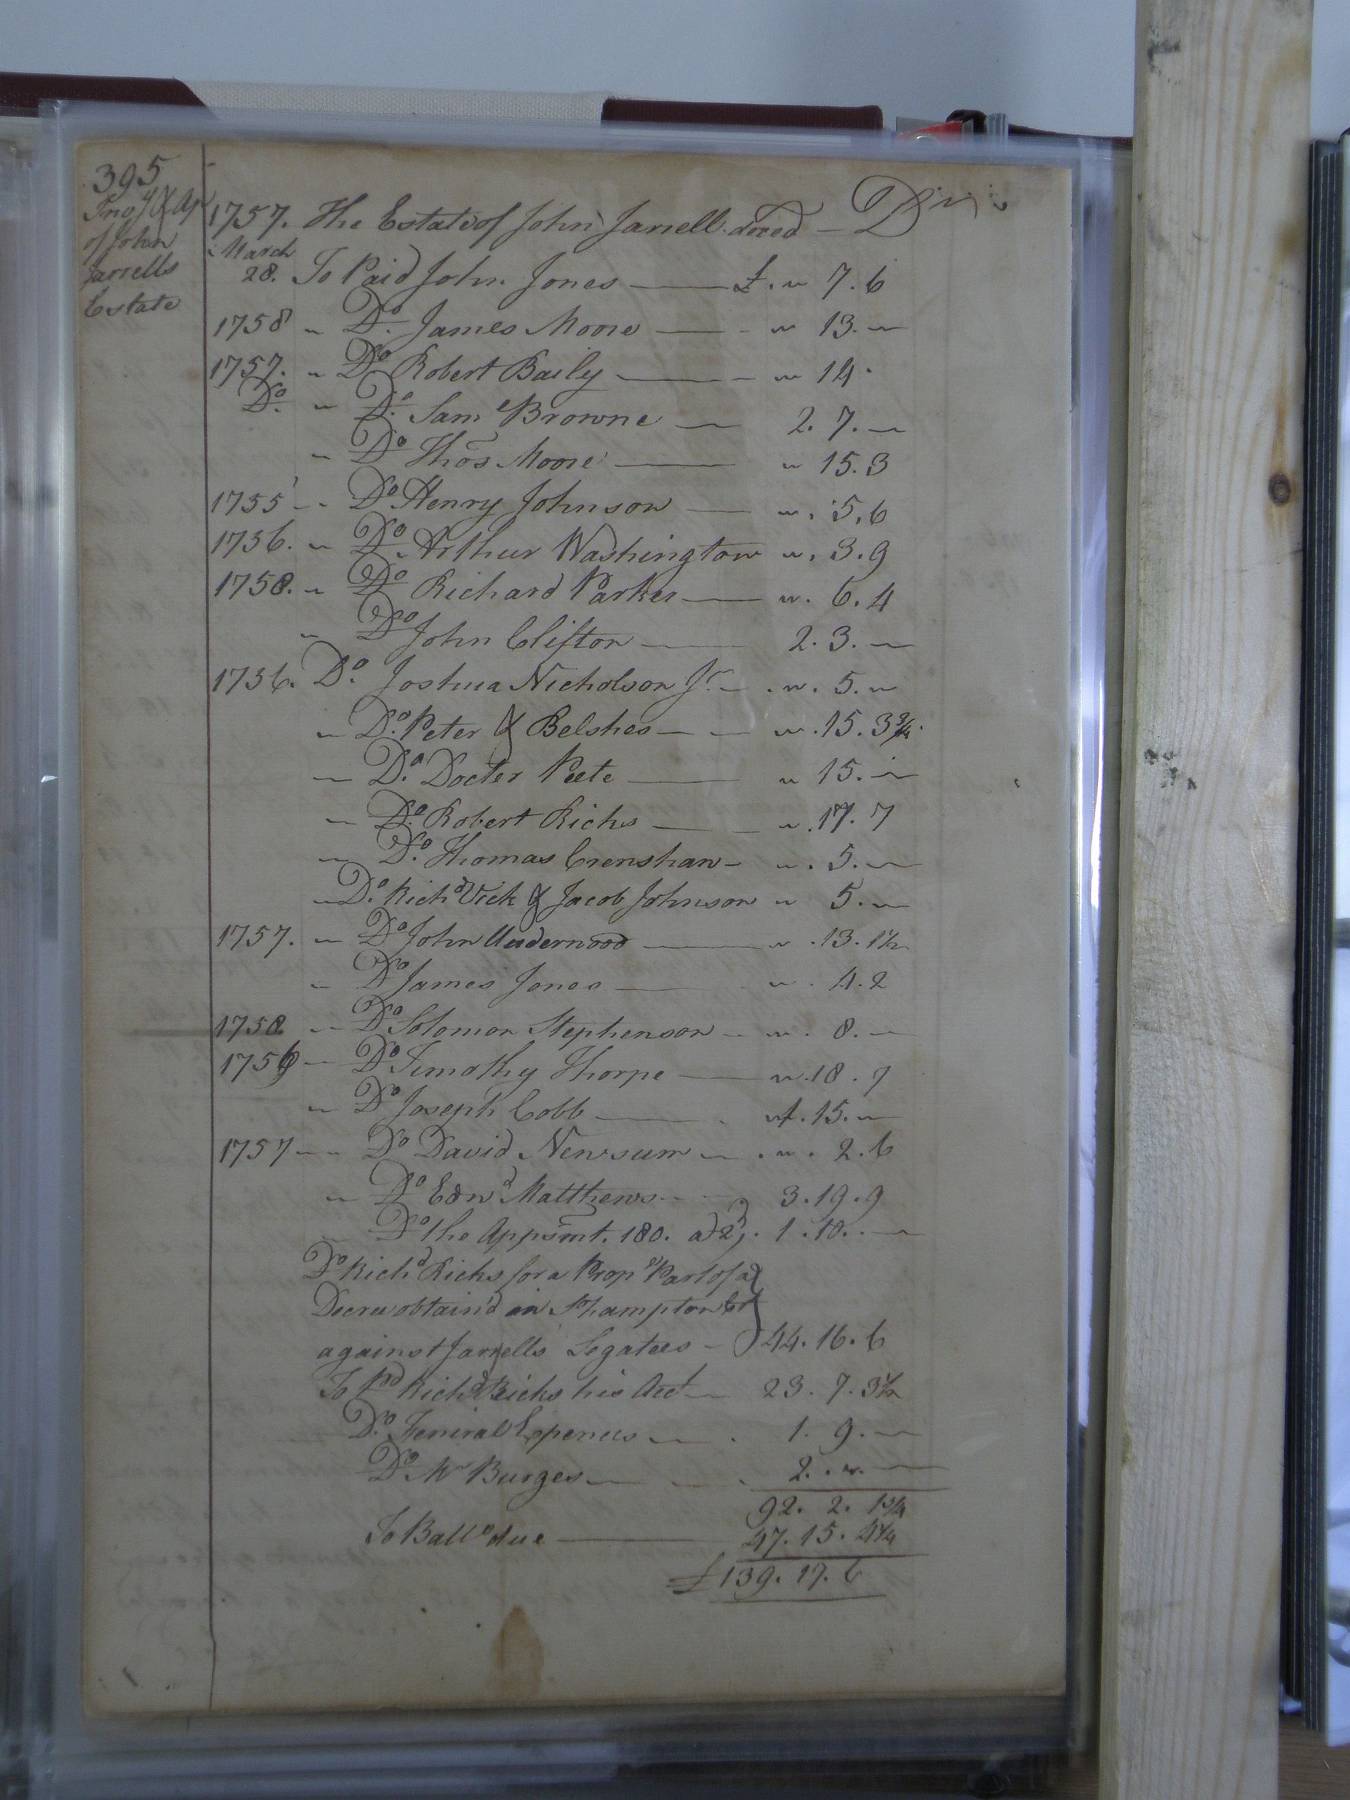 395
Invy & Ap
of John
Jarrells
Estate
1757. The Estate of John Jarrell. deced — Dr
March
28. To Paid John Jones — £ . " 7. 6
1758 " Do. James Moore — " 13. —
1757. " Do Robert Baily — " 14.
Do. " Do. Saml Browne — 2. 7. —
" Do Thos Moore — " 15. 3
1755 " Do Henry Johnson — " . 5. 6
1756. " Do Arthur Washington " . 3. 9
1758. " Do Richard Parker — " . 6. 4
" Do John Clifton — 2. 3. —
1756. Do. Joshua Nicholson Jr — . " . 5. "
" Do. Peter & Belshes — " . 15. 3 3/4
" Do. Docter Peete — " 15. —
" Do. Robert Ricks — " . 17. 7
" Do. Thomas Crenshaw — " . 5. —
" Do. Richd Vick & Jacob Johnson " 5. —
1757. " Do John Underwood — " . 13. 1 1/2
" Do James Jones — " . 4. 2
1758 " Do Solomon Stephenson — " . 8. —
1756 — Do Timothy Thorpe — " . 18. 7
" Do Joseph Cobb — . 15. —
1757 — Do David Newsum — . " . 2. 6
" Do Edwd Matthews — 3. 19. 9
" Do the Appsmt. 180. a 2d. 1. 10. —
Do Richd Ricks for a Propr Part of a
Decree obtain'd in Sohampton Ct
against Jarrells Legatees — 44. 16. 6
To Pd Richd Ricks his Acct — 23. 7. 3 1/2
Do. Feniral Expences — . 1. 9. —
Do Mr Burges — 2. . " . —
92. 2. 1 3/4
To Balle due — 47. 15. 4 1/4
£ 139. 17. 6